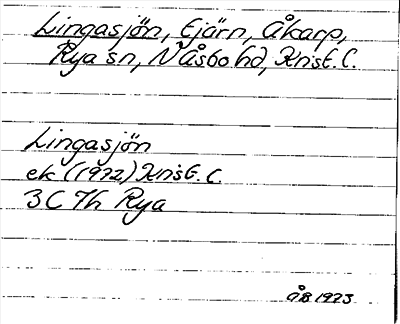 Lingasjön, Ejärn, Åkarp,
Rya sn, N Åsbo hd, Krist. l.
Lingasjön
ek (1972) Krist. l
3C 7h Rya
ÅB 1973